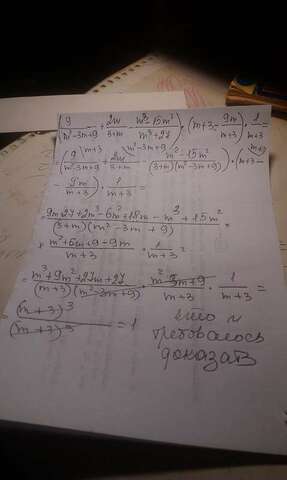 (9/(m²-3m+9) + 2m/(3+m) - (m³-15m²)/(m³+27)) · (m+3 - 9m/(m+3)) · 1/(m+3) =
= (9/(m²-3m+9) \m+3 + 2m/(3+m) \m²-3m+9 - (m³-15m²)/((3+m)(m²-3m+9))) · (m+3 \m+3 -
- 9m/(m+3)) · 1/(m+3) =
= (9m+27+2m³-6m²+18m-m³+15m²)/((3+m)(m²-3m+9)) ·
· (m²+6m+9-9m)/(m+3) · 1/(m+3) =
= (m³+9m²+27m+27)/((m+3)(m²-3m+9)) · (m²-3m+9)/(m+3) · 1/(m+3) =
(m+3)³/(m+3)³ = 1
что и
требовалось
доказать